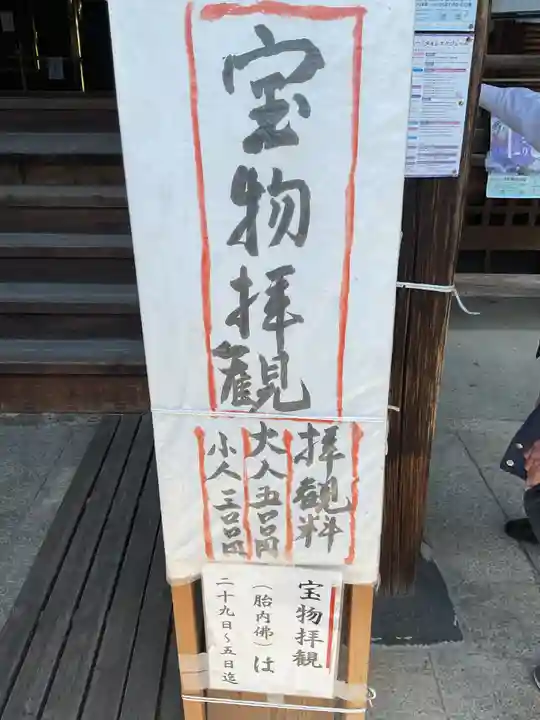 宝物拝観
拝観料
大人五〇〇円
小人三〇〇円
宝物拝観
（胎内佛）は
二十九日〜五日迄